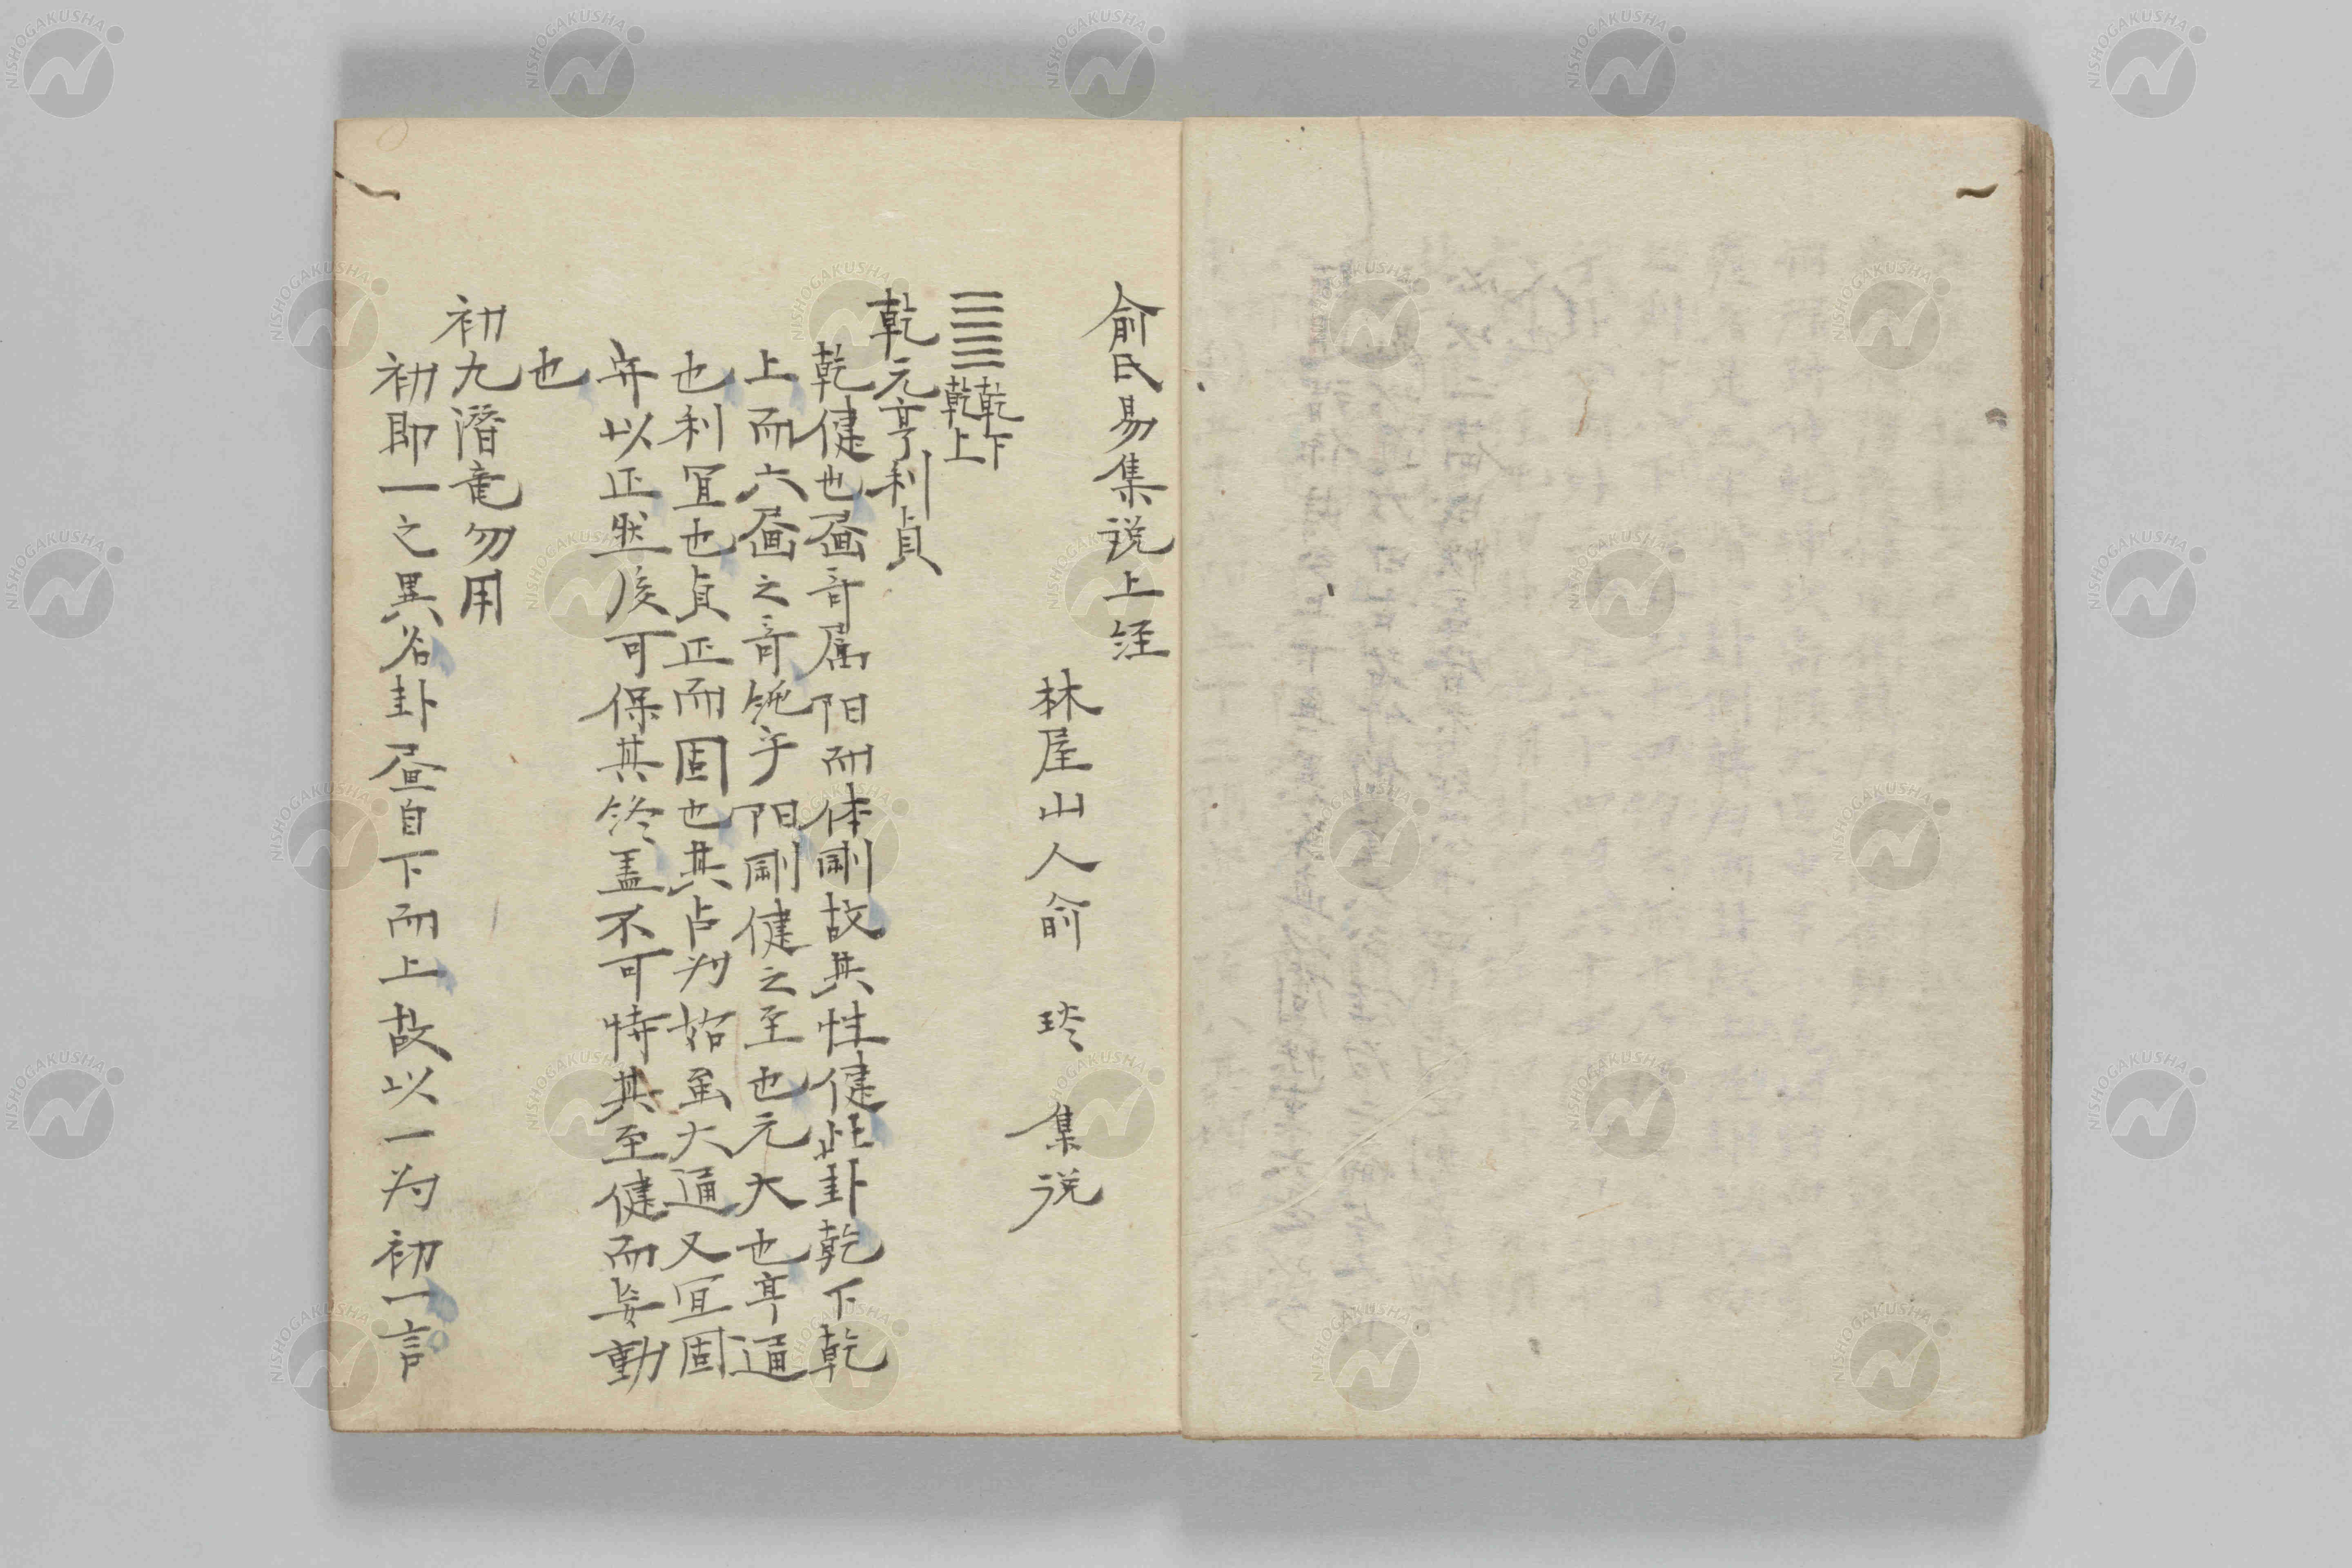 俞氏易集说上経
林屋山人俞　琰　集说
䷀乾下乾上
乾元亨利貞
乾健也画奇属阳而体剛故其性健此卦乾下乾
上而六画之奇純乎阳剛健之至也元大也亨通
也利宜也貞正而固也其占为始虽大通又宜固
守以正然后可保其终盖不可恃其至健而妄動
也
初九潜竜勿用
初即一之異名卦画自下而上故以一为初一言
NISHOGAKUSHA